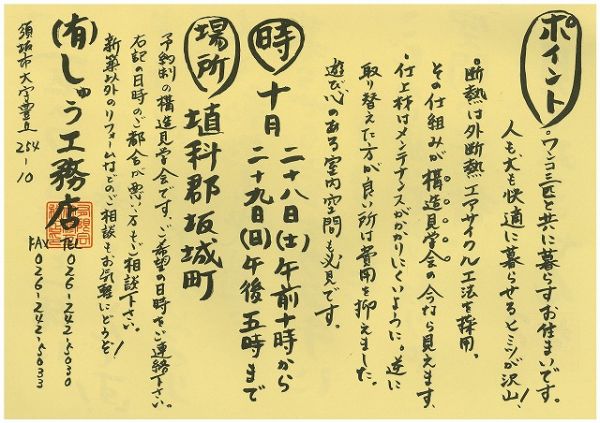 ポイント
・ワンコ三匹と共に暮らすお住まいです。
人も犬も快適に暮らせるヒミツが沢山！
・断熱は外断熱エアサイクル工法を採用。
その仕組みが構造見学会の今なら見えます。
・仕上材はメンテナンスがかかりにくいように。逆に
取り替えた方が良い所は費用を抑えました。
遊び心のある室内空間も必見です。
時
十月 二十八日(土)午前十時から
二十九日(日)午後五時まで
場所
埴科郡坂城町
予約制の構造見学会です。ご希望の日時をご連絡下さい。
右記の日時のご都合が悪い方もご相談下さい。
新築以外のリフォームなどのご相談もお気軽にどうぞ！
(有)しゅう工務店
TEL 026-242-5030
FAX 026-242-5033
須坂市大字豊丘254-10